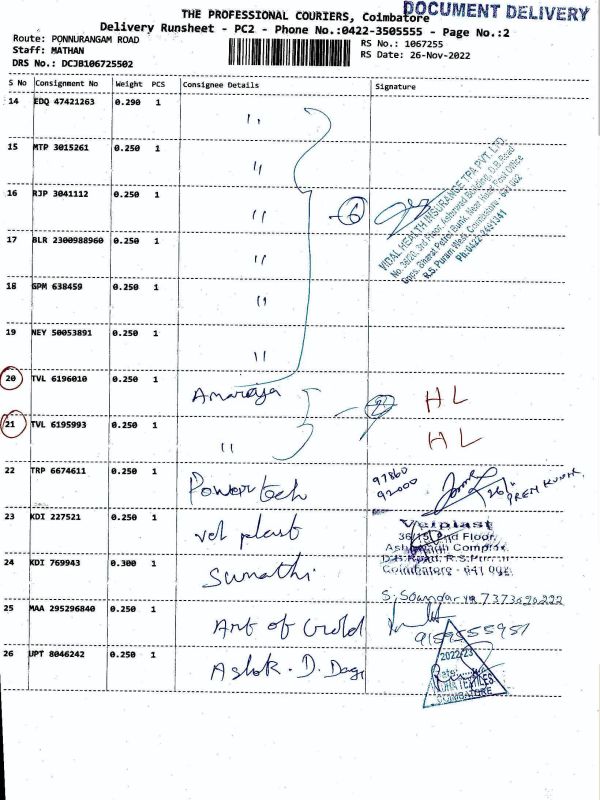 DOCUMENT DELIVERY
THE PROFESSIONAL COURIERS, Coimbatore
Delivery Runsheet - PC2 - Phone No.:0422-3505555 - Page No.:2
Route: PONNURANGAM ROAD
Staff: MATHAN
DRS No.: DCJB106725502
RS No.: 1067255
RS Date: 26-Nov-2022
S No Consignment No Weight PCS Consignee Details Signature
14 EDQ 47421263 0.290 1 "
15 MTP 3015261 0.250 1 "
16 RJP 3041112 0.250 1 " 6
VIDAL HEALTH INSURANCE TPA PVT. LTD.
No. 38/20, 3rd Floor, Ashirwad Building, D.B. Road
Opps. Bharat Petrol Bunk, Near Head Post Office
R.S. Puram West, Coimbatore - 641 002
Ph:0422-2491341
17 BLR 2300988960 0.250 1 "
18 GPM 638459 0.250 1 "
19 NEY 50053891 0.250 1 "
20 TVL 6196010 0.250 1 Amararaja 2 HL
21 TVL 6195993 0.250 1 " HL
22 TRP 6674611 0.250 1 Powertech 97860
92000 PREM KUMAR
23 KDI 227521 0.250 1 vel plast
Velplast
36/15, 2nd Floor,
Coimbatore - 641 002
24 KDI 769943 0.300 1 Sumathi
S. Soundarya 7373696222
25 MAA 295296840 0.250 1 Art of Gold
9159555957
26 UPT 8046242 0.250 1 Ashok. D. Daga
2022-23
TEXTILES
COIMBATORE